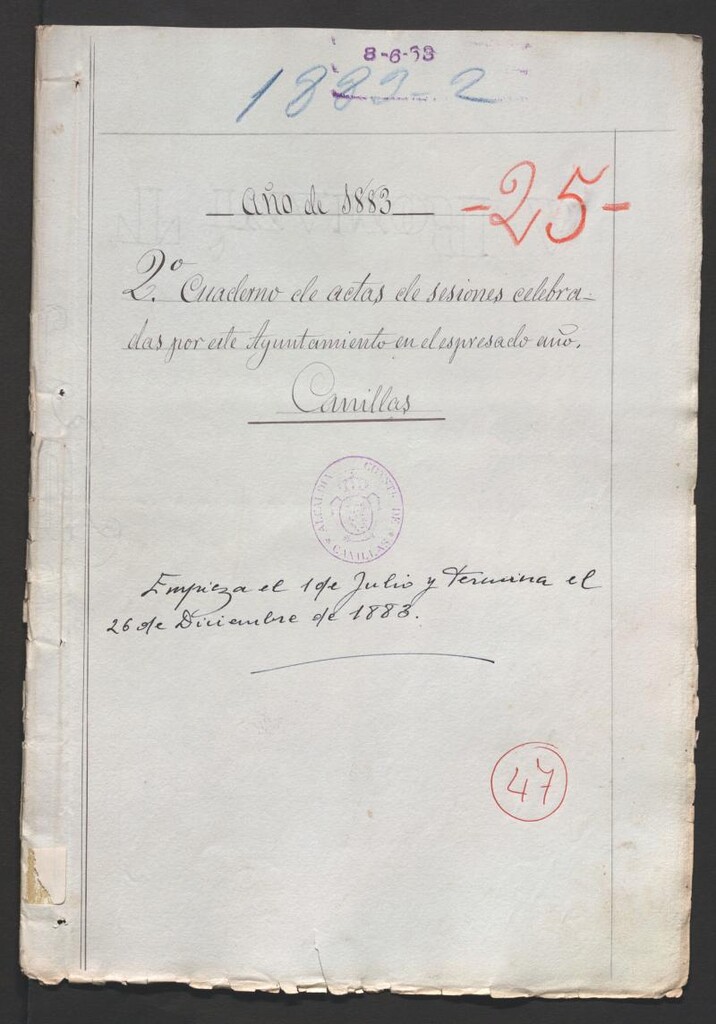 8-6-33
1883-2
Año de 1883
-25-
2.º Cuaderno de actas de sesiones celebra-
das por este Ayuntamiento en el espresado año.
Canillas
ALCALDIA CONSTL. DE
CANILLAS
Empieza el 1 de Julio y termina el
26 de Diciembre de 1883.
47